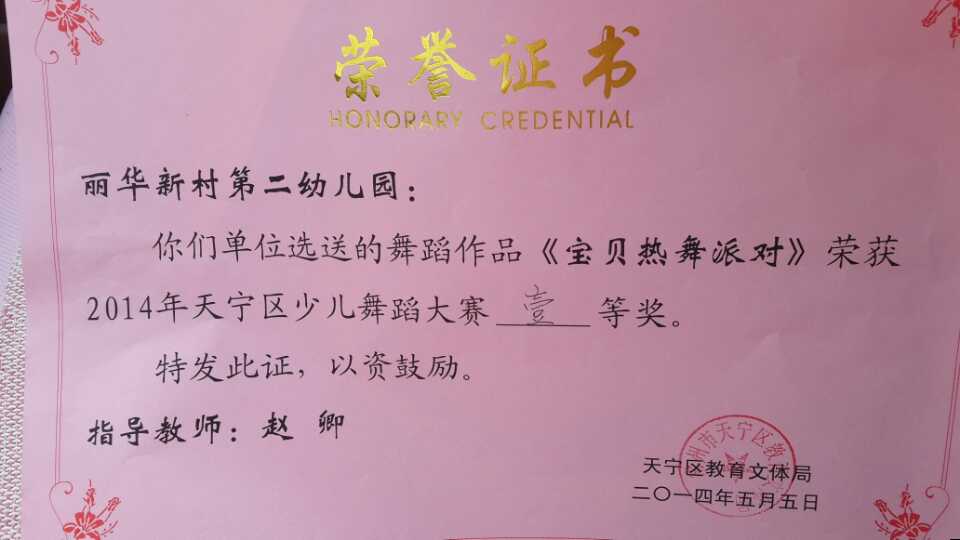 荣誉证书
HONORARY CREDENTIAL
丽华新村第二幼儿园：
你们单位选送的舞蹈作品《宝贝热舞派对》荣获
2014年天宁区少儿舞蹈大赛 壹 等奖。
特发此证，以资鼓励。
指导教师：赵 卿
州市天宁区教
天宁区教育文体局
二〇一四年五月五日